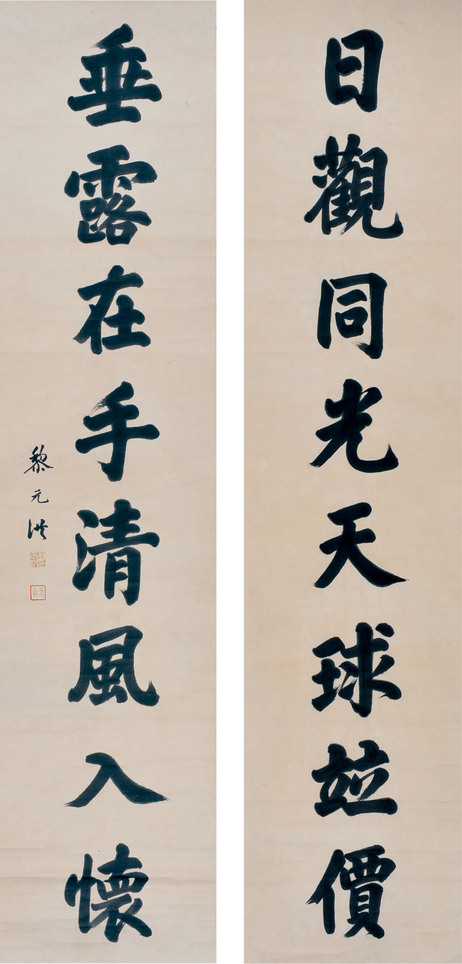 日觀同光天球並價
垂露在手清風入懷
黎元洪